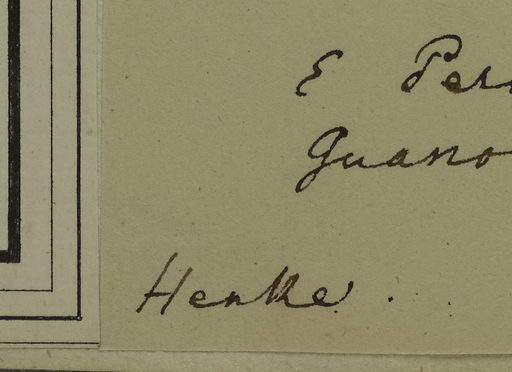 E Per
Guano
Henke.